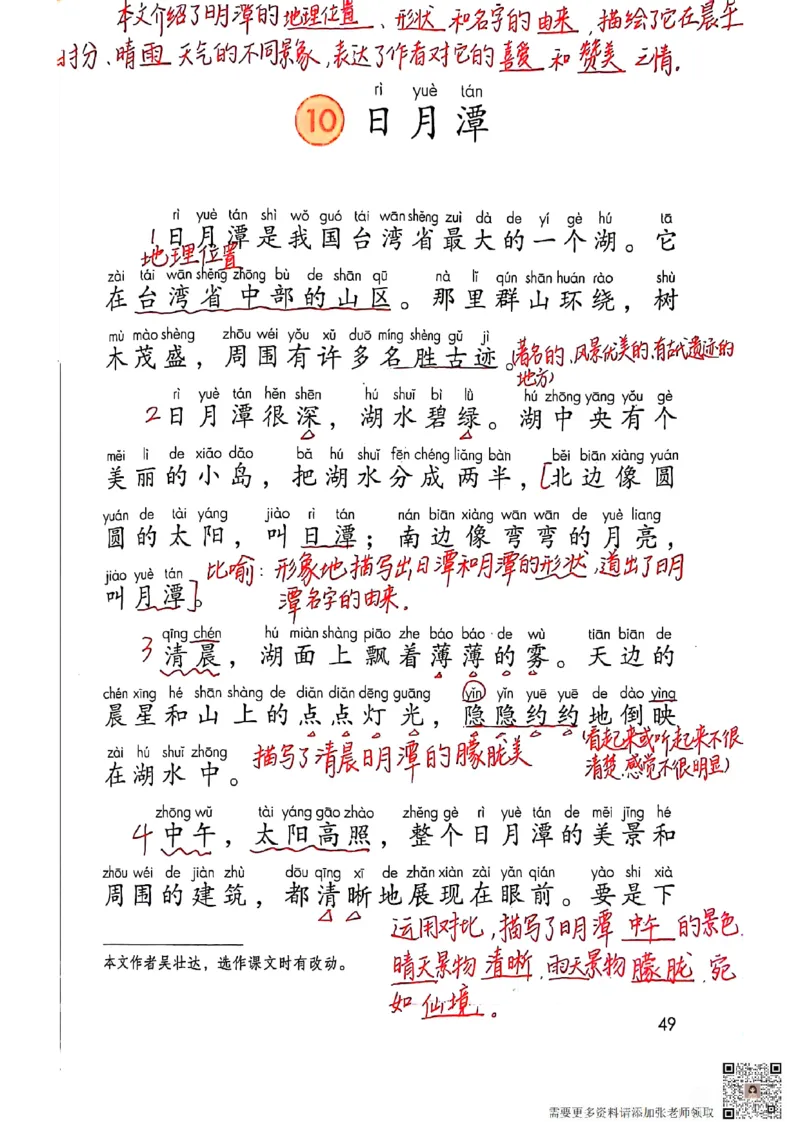 本文介绍了日月潭的地理位置、形状和名字的由来,描绘了它在晨午
时分、晴雨天气的不同景象,表达了作者对它的喜爱和赞美之情.
rì yuè tán
10 日月潭
rì yuè tán shì wǒ guó tái wān shěng zuì dà de yí gè hú tā
1日月潭是我国台湾省最大的一个湖。它
地理位置
zài tái wān shěng zhōng bù de shān qū nà lǐ qún shān huán rào shù
在台湾省中部的山区。那里群山环绕,树
mù mào shèng zhōu wéi yǒu xǔ duō míng shèng gǔ jì
木茂盛,周围有许多名胜古迹。(著名的、风景优美的、有古代遗迹的
地方)
rì yuè tán hěn shēn hú shuǐ bì lǜ hú zhōng yāng yǒu gè
2日月潭很深,湖水碧绿。湖中央有个
měi lì de xiǎo dǎo bǎ hú shuǐ fēn chéng liǎng bàn běi biān xiàng yuán
美丽的小岛,把湖水分成两半,[北边像圆
yuán de tài yáng jiào rì tán nán biān xiàng wān wān de yuè liang
圆的太阳,叫日潭;南边像弯弯的月亮,
jiào yuè tán
叫月潭]。
比喻:形象地描写出日潭和月潭的形状,道出了日月
潭名字的由来.
qīng chén hú miàn shàng piāo zhe báo báo de wù tiān biān de
3清晨,湖面上飘着薄薄的雾。天边的
chén xīng hé shān shàng de diǎn diǎn dēng guāng yǐn yǐn yuē yuē de dào yìng
晨星和山上的点点灯光,隐隐约约地倒映
zài hú shuǐ zhōng
在湖水中。
描写了清晨日月潭的朦胧美
(看起来或听起来不很
清楚,感觉不很明显)
zhōng wǔ tài yáng gāo zhào zhěng gè rì yuè tán de měi jǐng hé
4中午,太阳高照,整个日月潭的美景和
zhōu wéi de jiàn zhù dōu qīng xī de zhǎn xiàn zài yǎn qián yào shi xià
周围的建筑,都清晰地展现在眼前。要是下
运用对比,描写了日月潭中午的景色.
本文作者吴壮达,选作课文时有改动。
晴天景物清晰,雨天景物朦胧,宛
如仙境。
49
需要更多资料请添加张老师领取